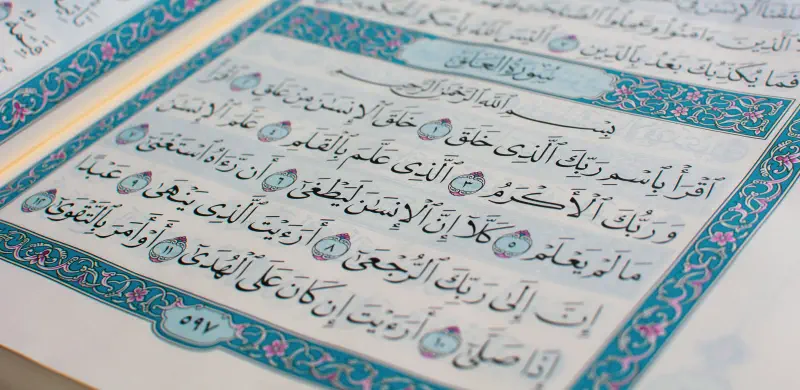 ٱلَّذِينَ ءَامَنُوا۟ وَعَمِلُوا۟
فَمَا يُكَذِّبُكَ بَعْدُ بِٱلدِّينِ ٧ أَلَيْسَ ٱللَّهُ بِأَحْكَمِ
سُورَةُ ٱلْعَلَقِ
بِسْمِ ٱللَّهِ ٱلرَّحْمَٰنِ ٱلرَّحِيمِ
ٱقْرَأْ بِٱسْمِ رَبِّكَ ٱلَّذِى خَلَقَ ١ خَلَقَ ٱلْإِنسَٰنَ مِنْ عَلَقٍ ٢ ٱقْرَأْ
وَرَبُّكَ ٱلْأَكْرَمُ ٣ ٱلَّذِى عَلَّمَ بِٱلْقَلَمِ ٤ عَلَّمَ ٱلْإِنسَٰنَ
مَا لَمْ يَعْلَمْ ٥ كَلَّآ إِنَّ ٱلْإِنسَٰنَ لَيَطْغَىٰٓ ٦ أَن رَّءَاهُ ٱسْتَغْنَىٰٓ ٧
إِنَّ إِلَىٰ رَبِّكَ ٱلرُّجْعَىٰٓ ٨ أَرَءَيْتَ ٱلَّذِى يَنْهَىٰ ٩ عَبْدًا
إِذَا صَلَّىٰٓ ١٠ أَرَءَيْتَ إِن كَانَ عَلَى ٱلْهُدَىٰٓ ١١ أَوْ أَمَرَ بِٱلتَّقْوَىٰٓ ١٢
٥٩٧